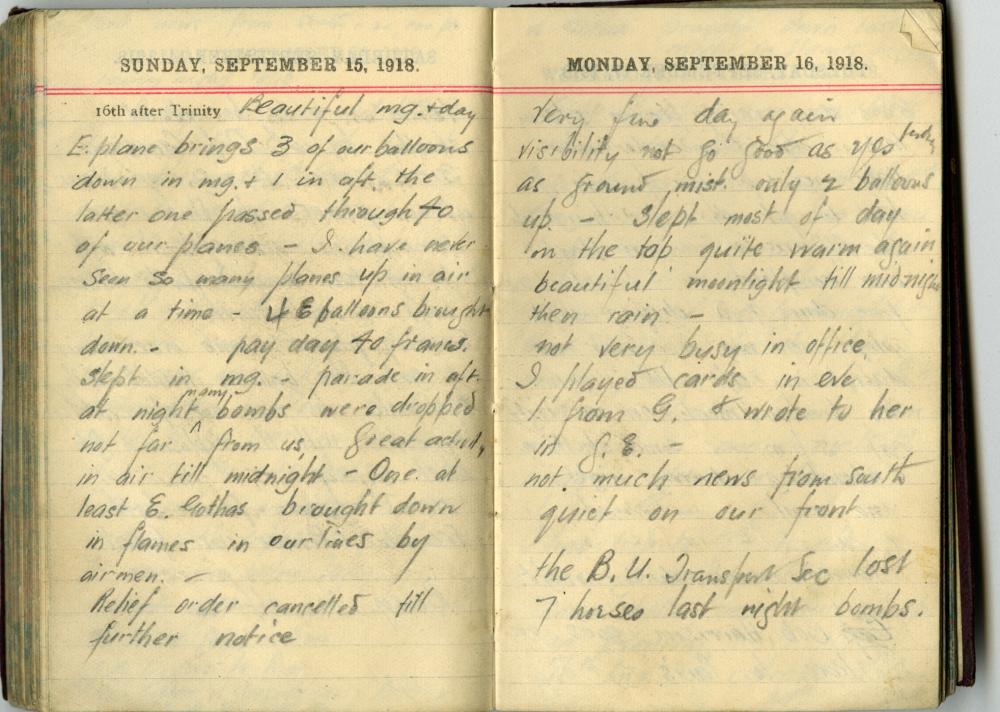 SUNDAY, SEPTEMBER 15, 1918.
16th after Trinity Beautiful mg. + day
E. plane brings 3 of our balloons
down in mg. + 1 in aft. the
latter one passed through 40
of our planes – I have never
seen so many planes up in air
at a time – 4 E balloons brought
down. – pay day 40 francs.
Slept in mg. – parade in aft.
many
at night ^ bombs were dropped
not far from us, Great
in air till midnight – One at
least E. Gothas brought down
in flames in our lines by
airmen. –
Relief order cancelled till
further notice
MONDAY, SEPTEMBER 16, 1918.
Very fine day again
visibility not so good as yes terday
as ground mist. only 2 balloons
up. – Slept most of day
on the top quite warm again
beautiful moonlight till midnight
then rain –
not very busy in office,
I played cards in eve
1 from G. & wrote to her
in G. E. –
not much news from south
quiet on our front
the B. U. Transport Sec lost
7 horses last night bombs.